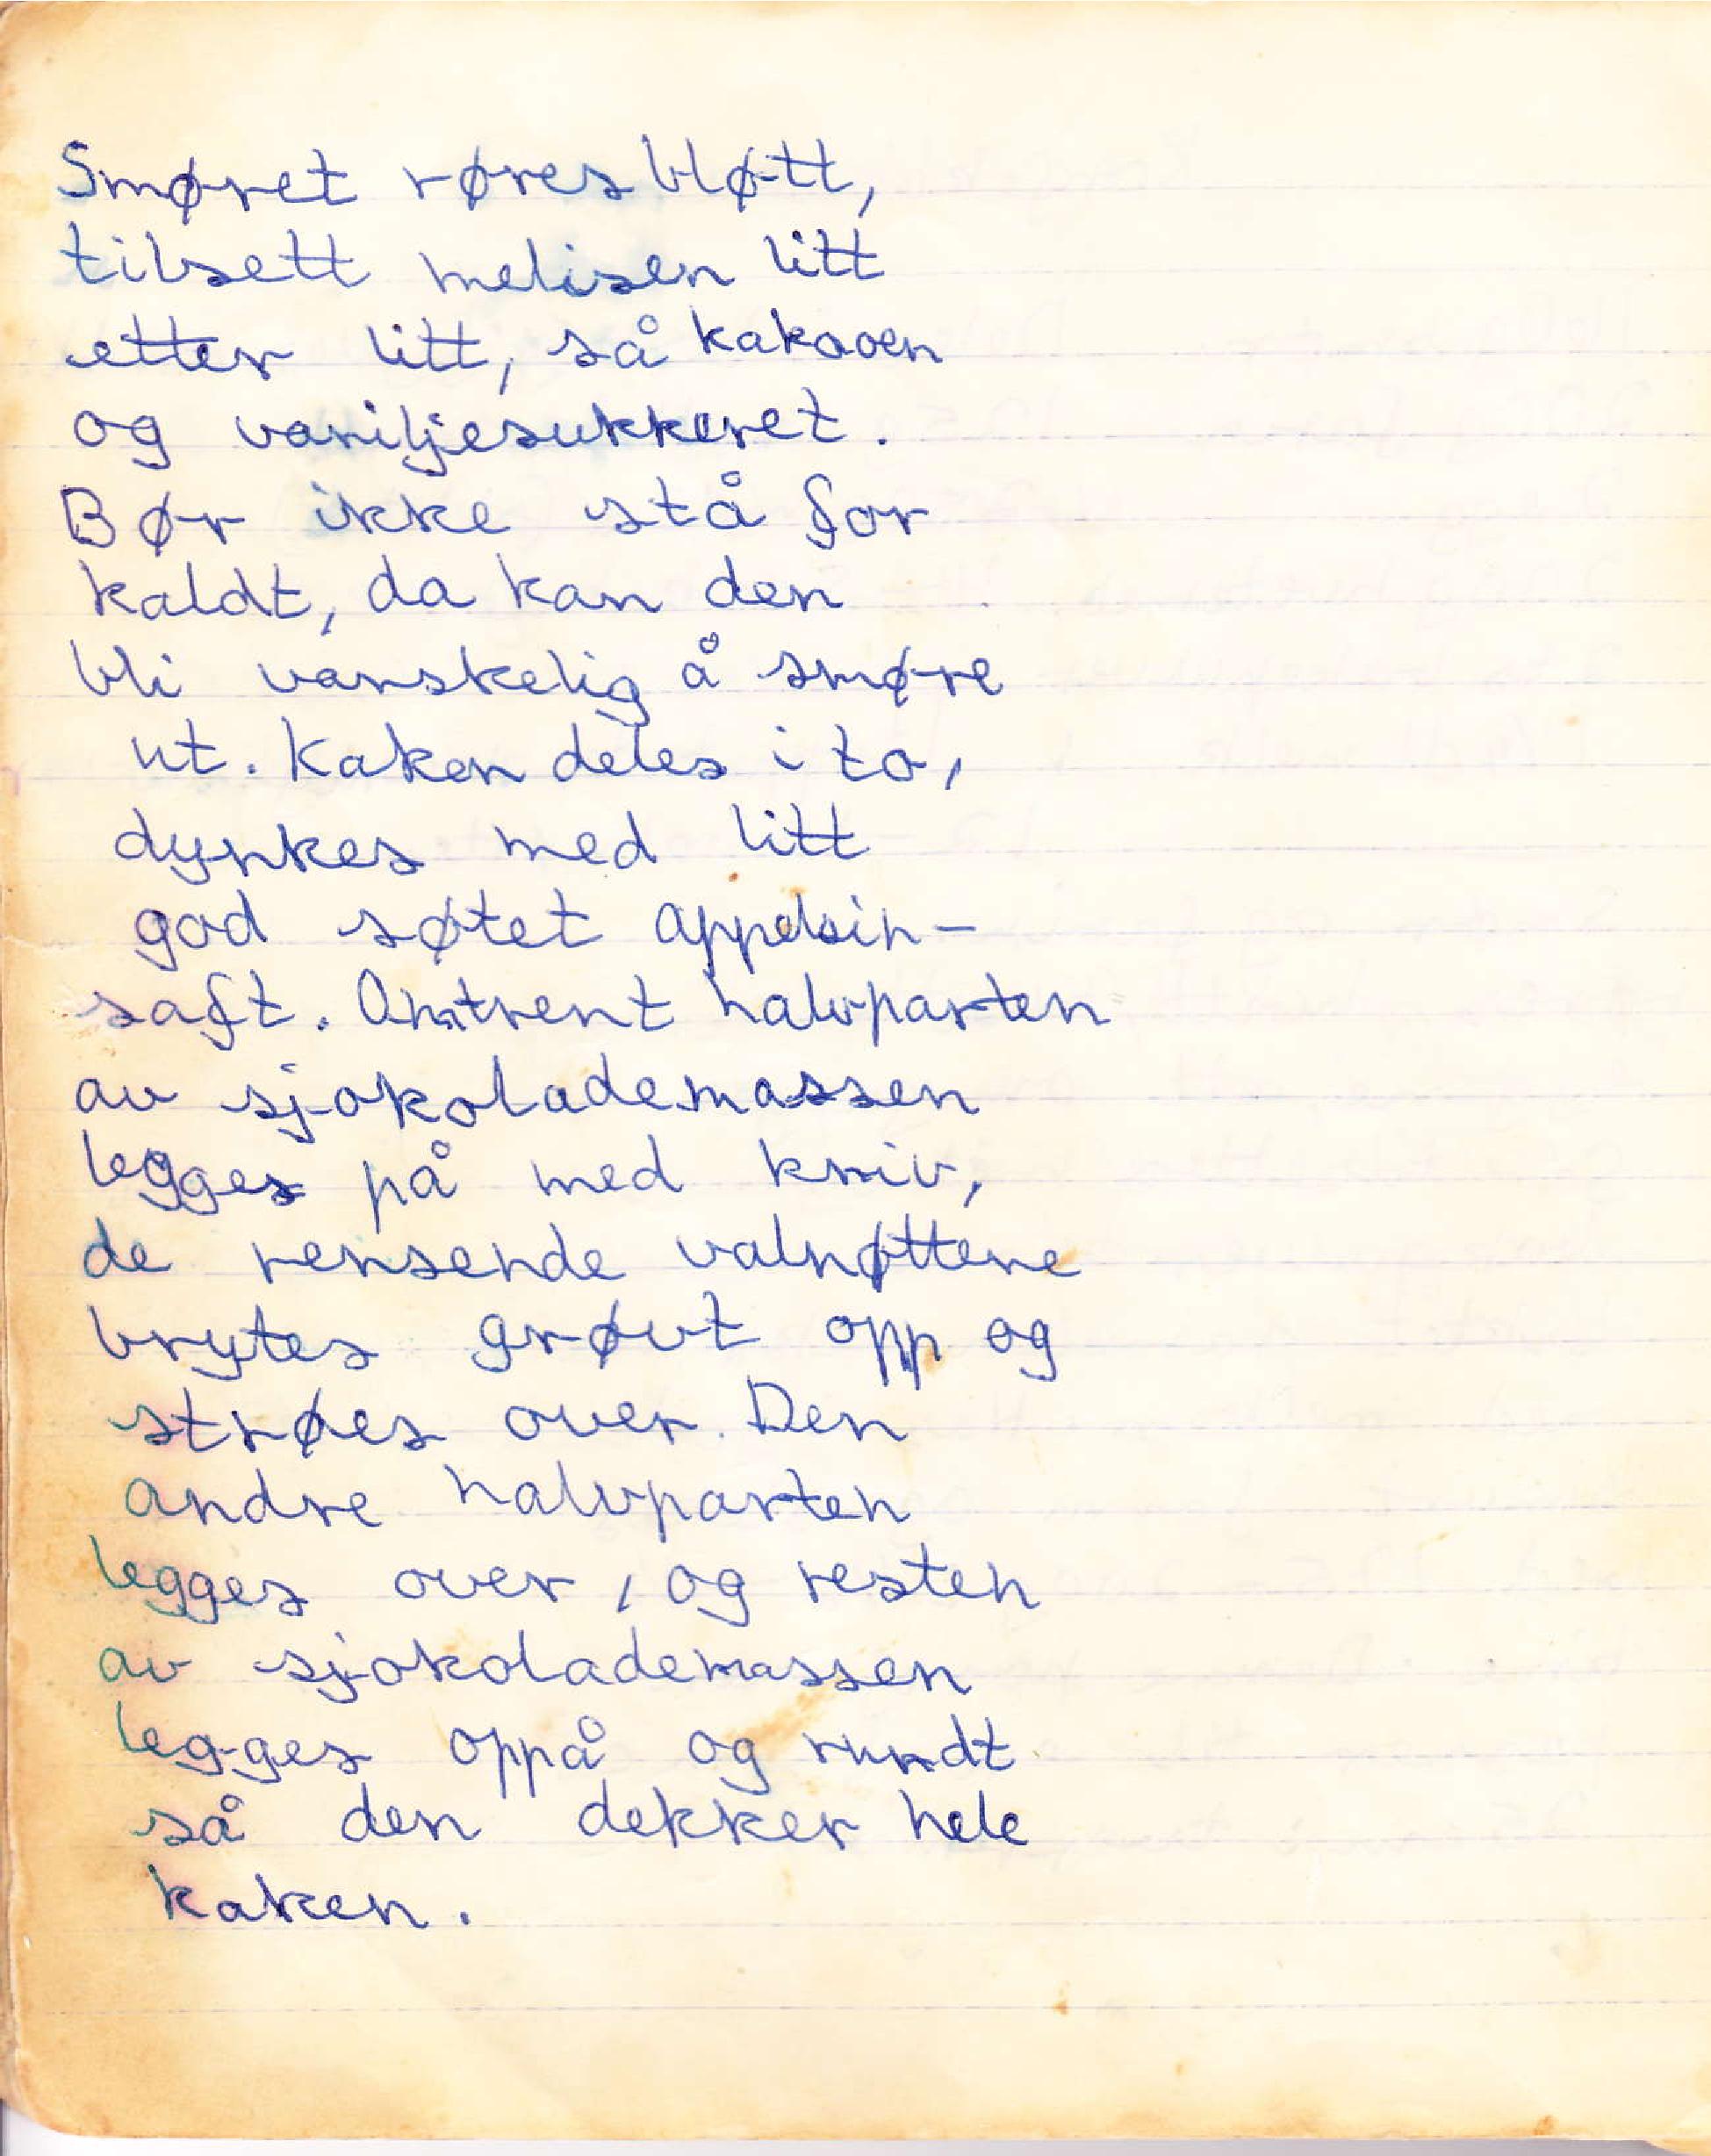 Smøret røres bløtt,
tilsett melisen litt
etter litt, så kakaoen
og vaniljesukkeret.
Bør ikke stå for
kaldt, da kan den
bli vanskelig å smøre
ut. Kaken deles i to,
dynkes med litt
god søtet appelsin-
saft. Omtrent halvparten
av sjokolademassen
legges på med kniv,
de rensende valnøttene
brytes grøvt opp og
strøes over. Den
andre halvparten
legges over, og resten
av sjokolademassen
legges oppå og rundt
så den dekker hele
kaken.